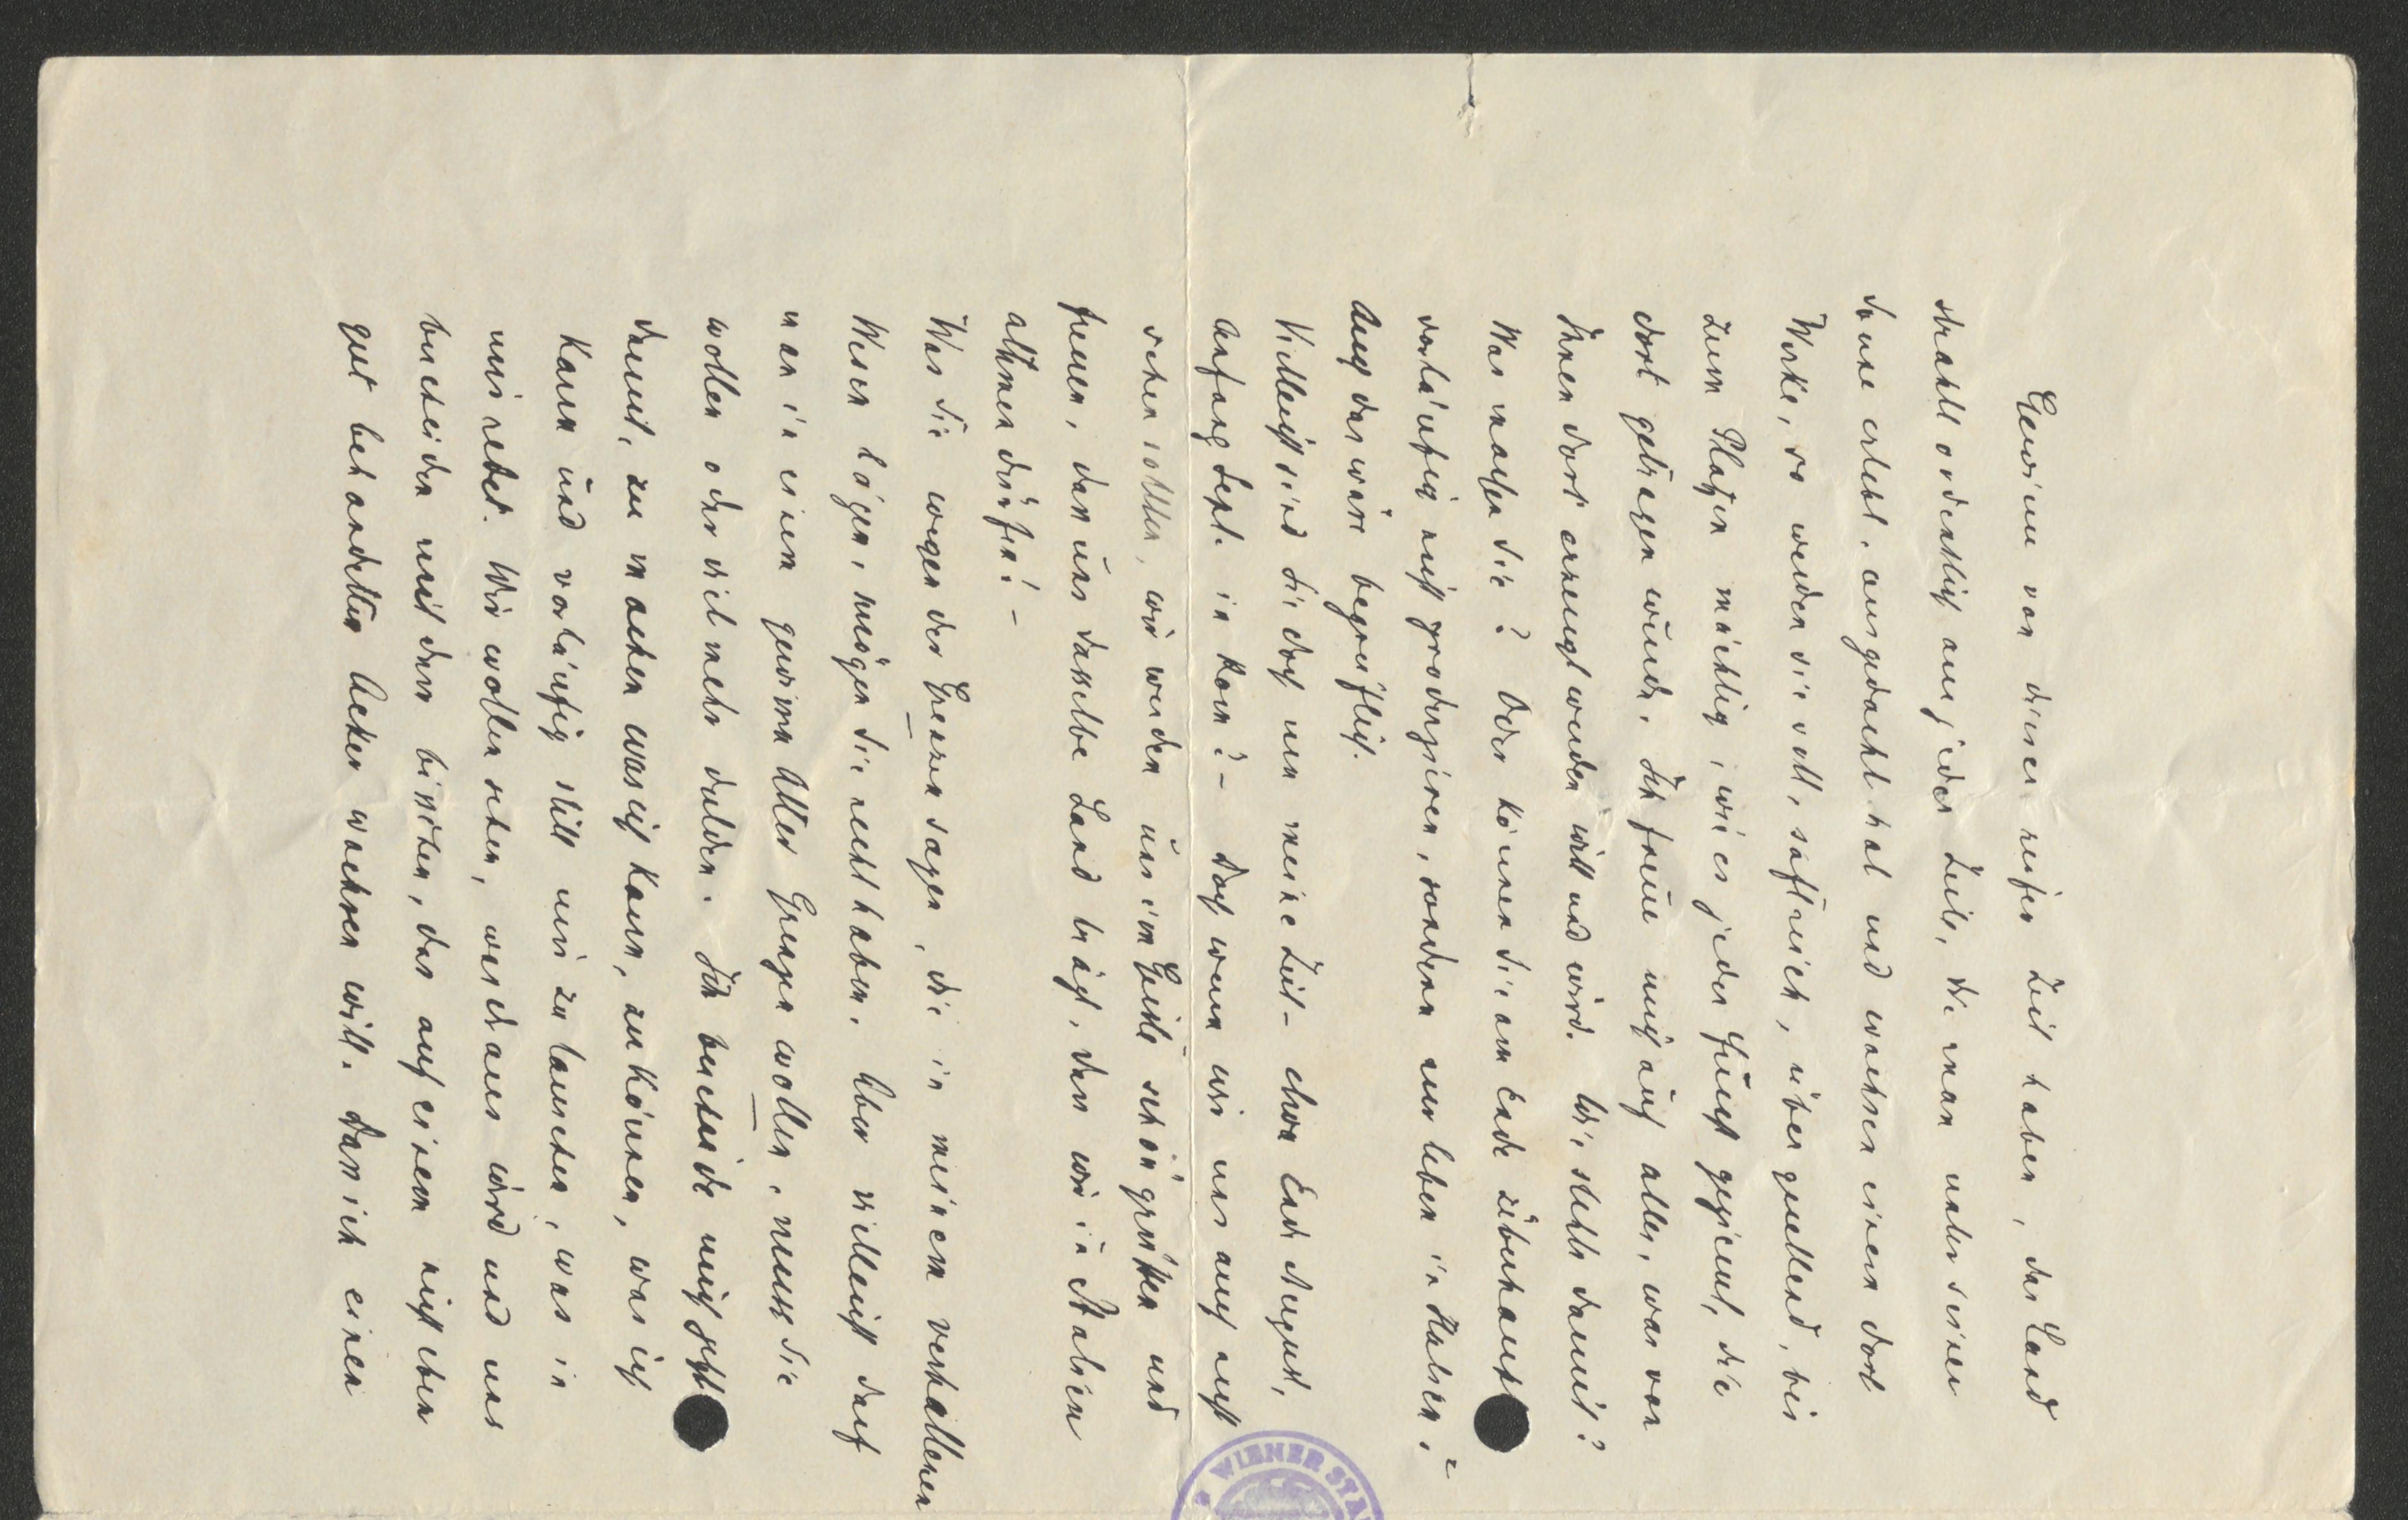 Gewinn von dieser reifen Zeit haben, das Land
strahlt ordentlich aus jeder Zeile, die man unter seiner
Sonne erlebt, ausgedacht hat und wachsen einem dort
Werke, so werden sie voll, saftreich, überquellend, bis
zum Platzen mächtig, wie es jeder Frucht geziemt, die
dort getragen wurde. Ich freue mich auf alles, was von
Ihnen dort erzeugt werden will und wird. Wie stehts damit?
Was machen Sie? Oder können Sie am Ende überhaupt
vorläufig nicht produzieren, sondern nur leben in Italien?
Auch das wäre begreiflich.
Vielleicht sind Sie doch um meine Zeit – etwa Ende August,
Anfang Sept. in Rom? – Doch wenn wir uns auch nicht
sehen sollten, wir werden uns im Geiste schön grüßen und
freuen, dass uns dasselbe Land trägt, dass wir in Italien
athmen dürfen! –
Was Sie wegen der Grenzen sagen, die in meinem verhaltenen
Wesen lägen, mögen Sie recht haben. Aber vielleicht darf
man in einem gewissen Alter Grenzen wollen, muss sie
wollen oder vielmehr dulden. Ich bescheide mich jetzt
damit, zu machen was ich kann, zu können, was ich
kann und vorläufig still mir zu lauschen, was in
mir redet. Wir wollen sehen, was draus wird und uns
bescheiden mit dem bisschen, das auf einem nicht eben
gut behandelten Acker wachsen will. Dass ich einen
WIENER STA